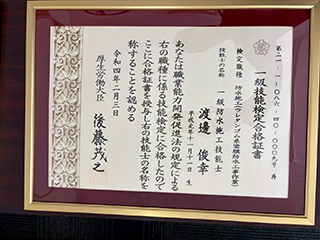 第二二-一-〇八六-四〇-〇〇〇九号 再
一級技能検定合格証書
検定職種 防水施工(ウレタンゴム系塗膜防水工事作業)
技能士の名称 一級防水施工技能士
渡邊 俊幸
平成元年十一月十一日 生
あなたは職業能力開発促進法の規定による
右の職種に係る技能検定に合格したので
ここに合格証書を授与し右の技能士の名称を
称することを認める
令和四年二月三日
厚生労働大臣 後藤茂之